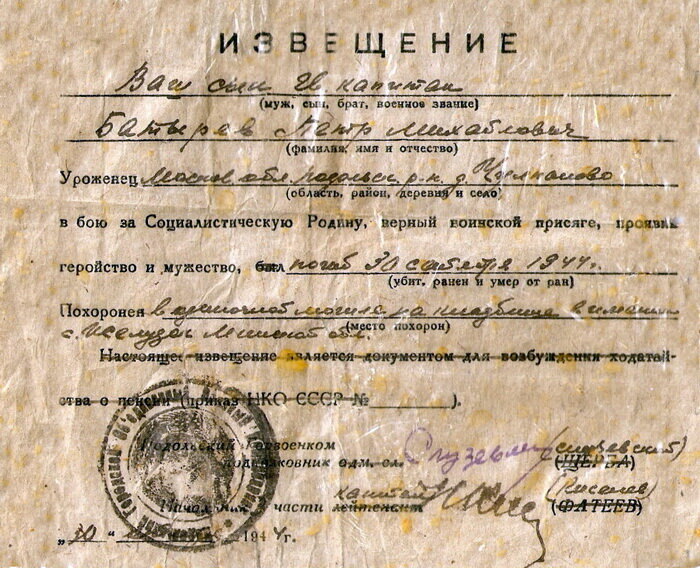 ИЗВЕЩЕНИЕ
Ваш сын гв капитан
(муж, сын, брат, военное звание)
Батырев Петр Михайлович
(фамилия, имя и отчество)
Уроженец Москов обл Подольск р-н д
(область, район, деревня и село)
в бою за Социалистическую Родину, верный воинской присяге, проявив
геройство и мужество, был погиб 1944г.
(убит, ранен и умер от ран)
Похоронен в одиночной могиле на кладбище в имении
с. Желудок Минской обл.
(место похорон)
Настоящее извещение является документом для возбуждения ходатай-
ства о пенсии (приказ НКО СССР № ).
Подольский Горвоенком
подполковник адм. сл. (ЩЕРБА)
капитан (Киселев)
Начальник части лейтенант (ФАТЕЕВ)
„30“ 1944г.